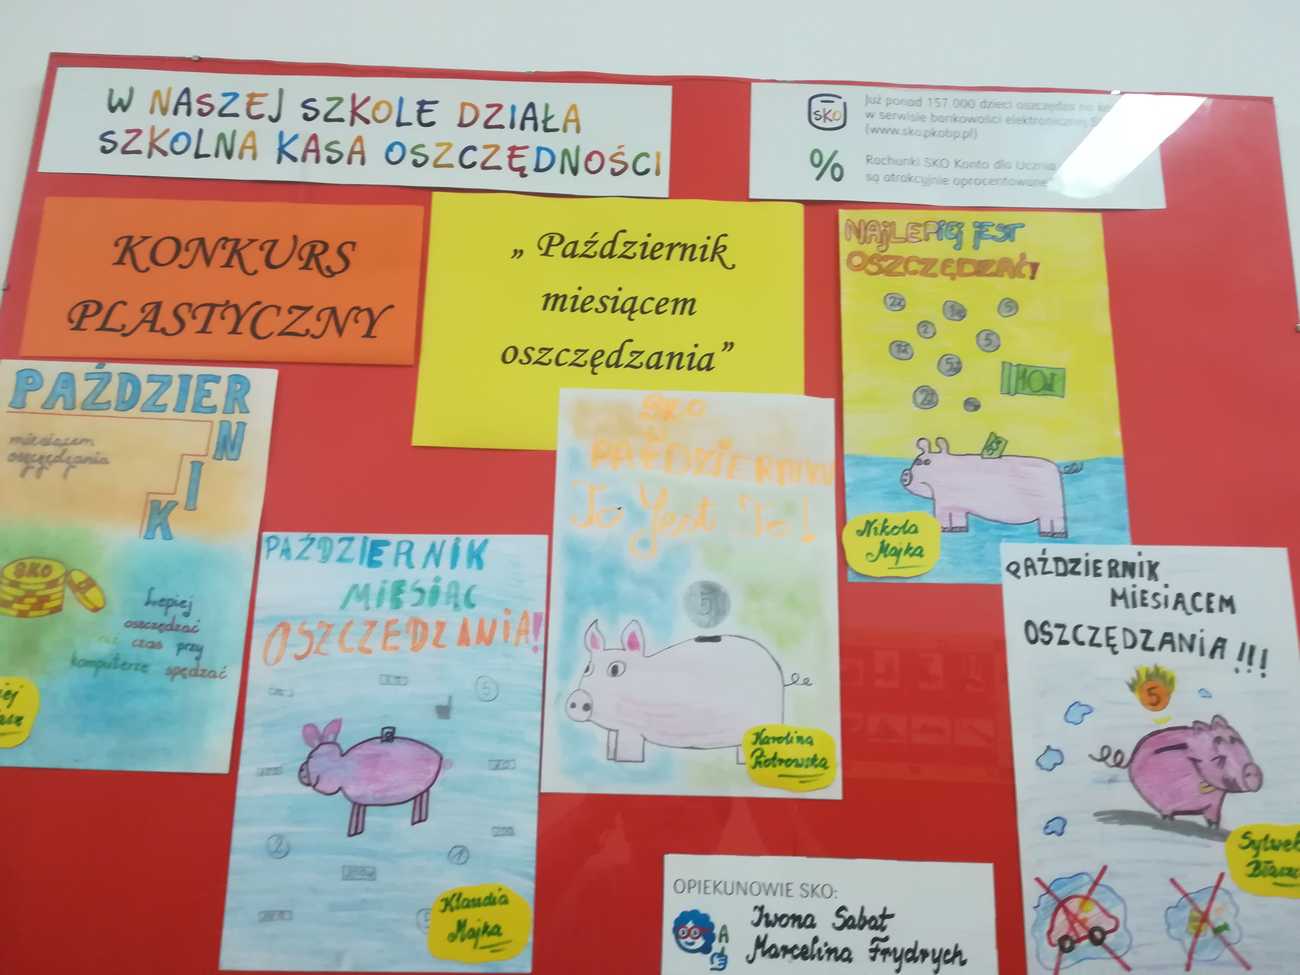 W NASZEJ SZKOLE DZIAŁA
SZKOLNA KASA OSZCZĘDNOŚCI
SKO
Już ponad 157 000 dzieci oszczędza na
w serwisie bankowości elektronicznej
(www.sko.pkobp.pl)
%
Rachunki SKO Konta dla Ucznia
są atrakcyjnie oprocentowane
KONKURS
PLASTYCZNY
„ Październik
miesiącem
oszczędzania”
NAJLEPIEJ JEST
OSZCZĘDZAĆ!
5
2
5
Nikola
Majka
PAŹDZIERNIK
miesiącem
oszczędzania
SKO
Lepiej
oszczędzać
niż czas przy
komputerze spędzać
PAŹDZIERNIK
MIESIĄC
OSZCZEDZANIA!
5
2
1
5
Klaudia
Majka
SKO
W
PAŹDZIERNIKU
To Jest To!
5
Karolina
Piotrowska
PAŹDZIERNIK
MIESIĄCEM
OSZCZĘDZANIA!!!
5
OPIEKUNOWIE SKO:
Iwona Sabat
Marcelina Frydrych